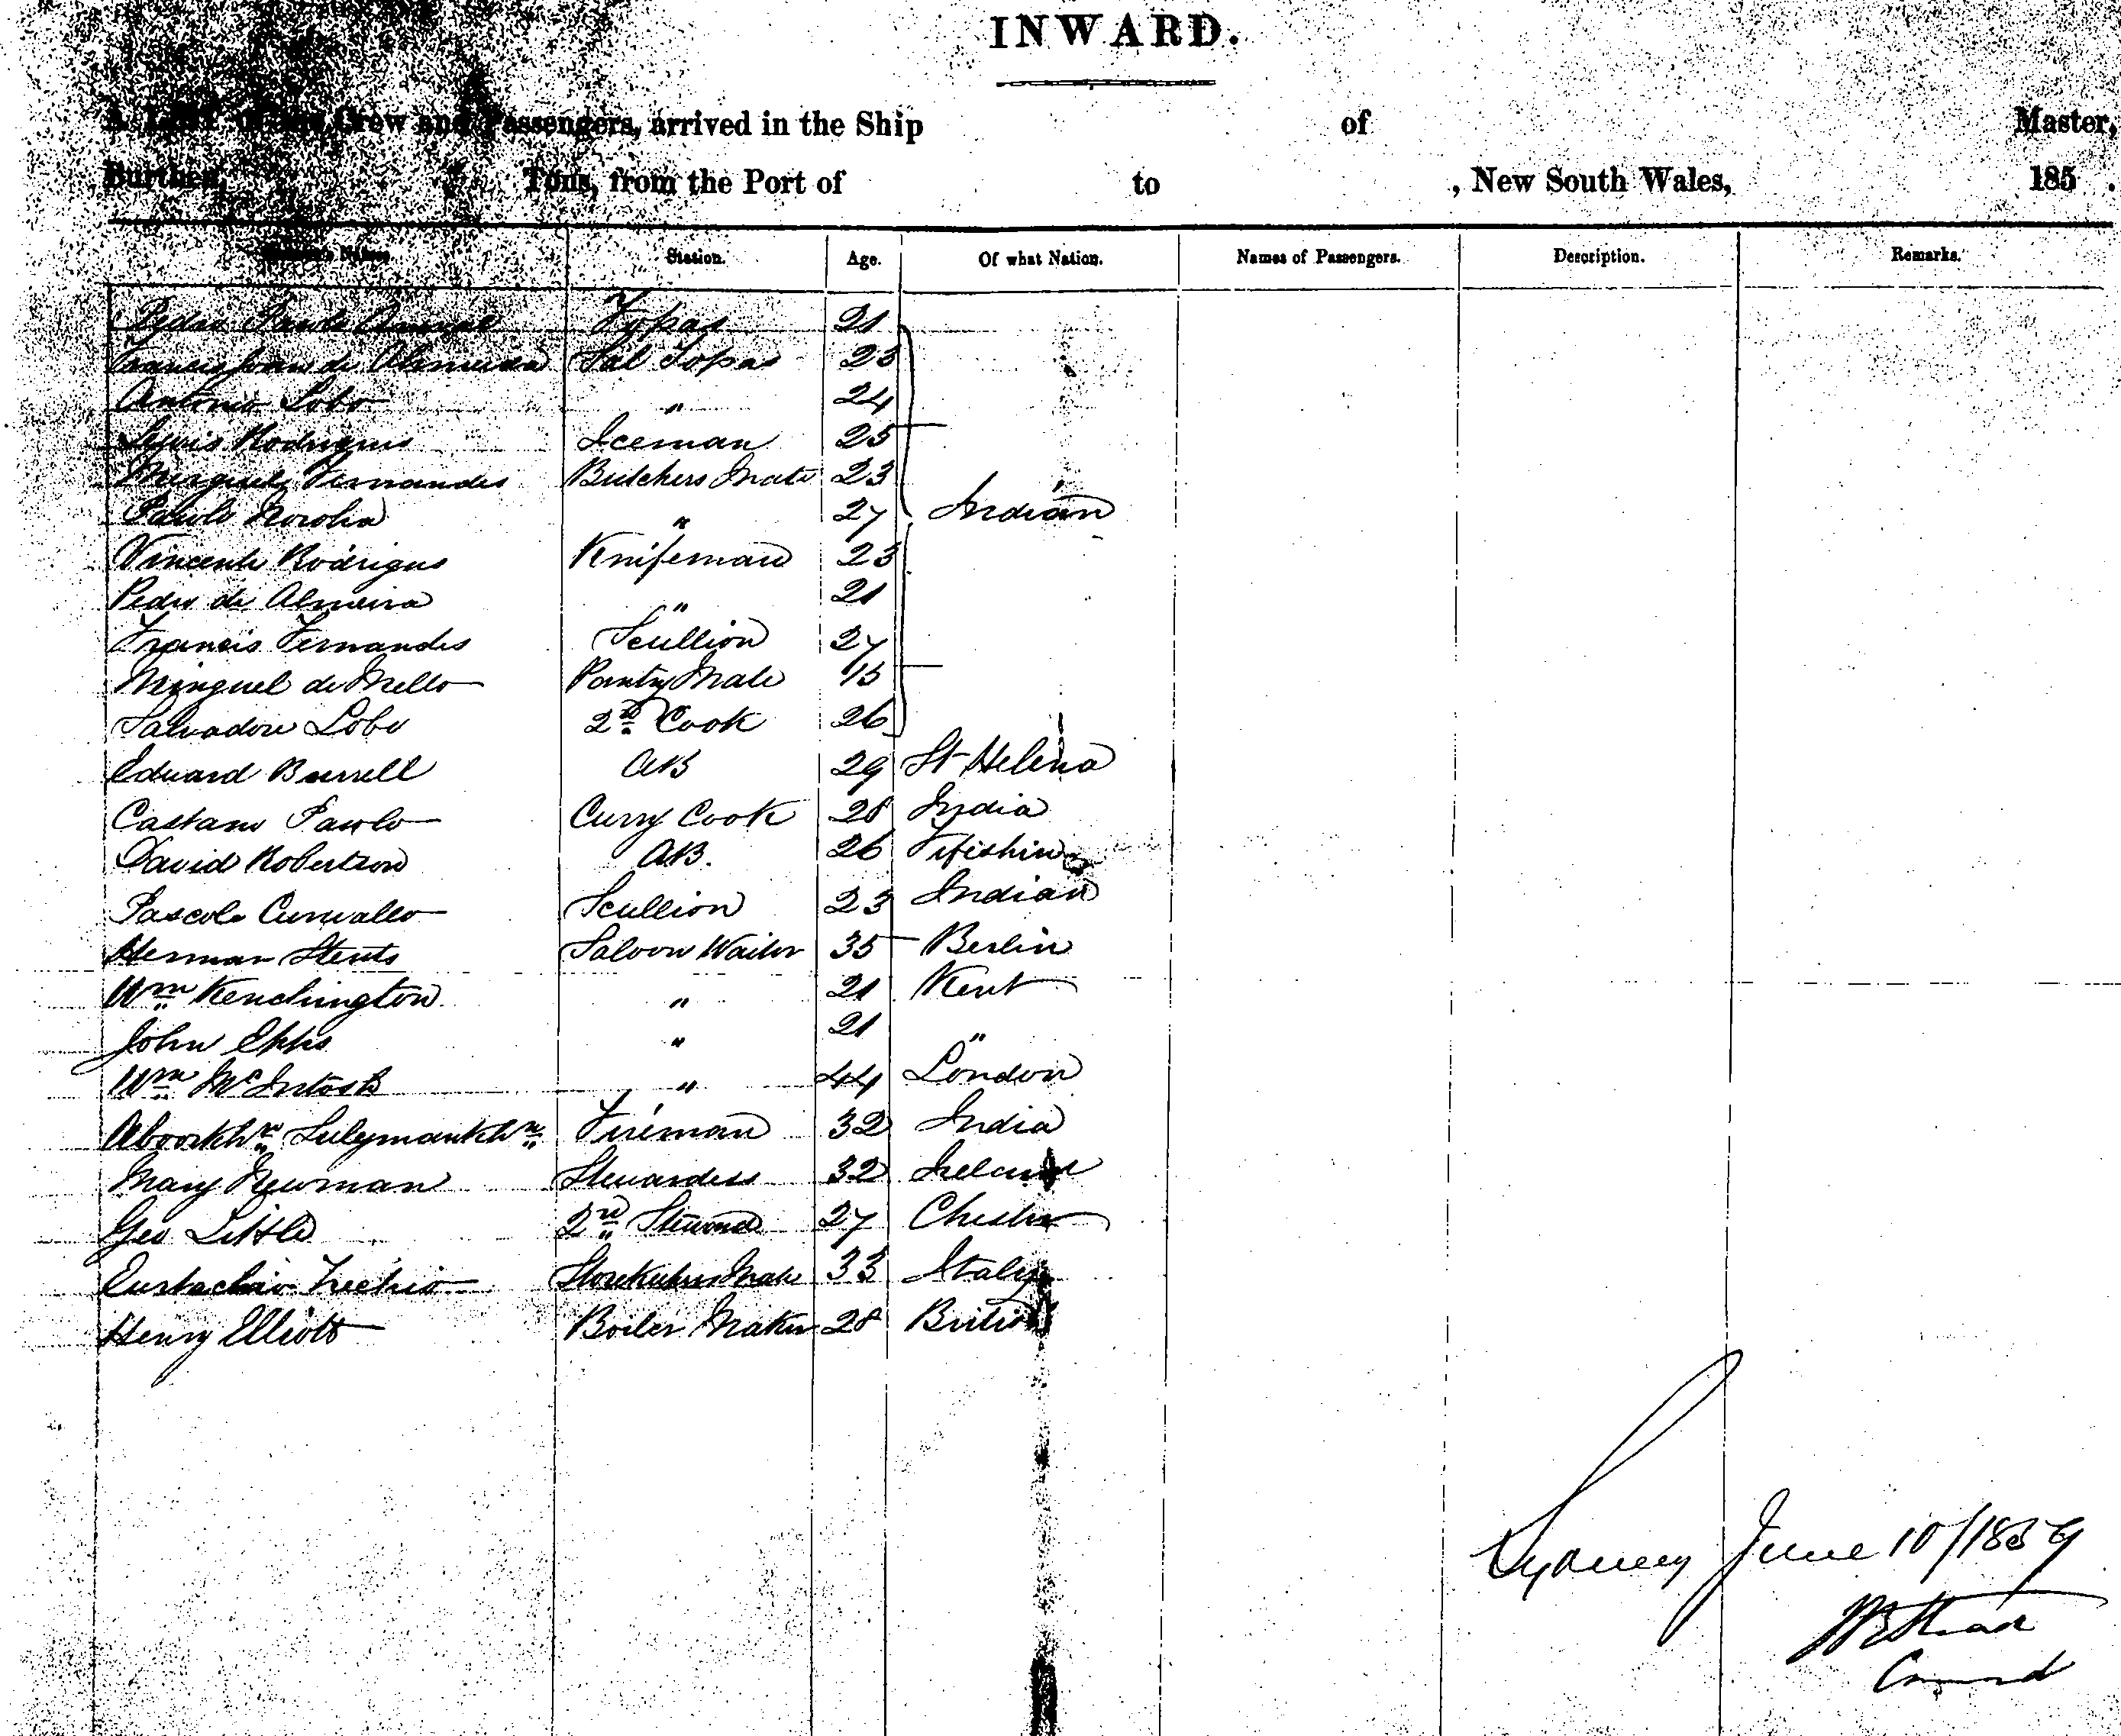 INWARD.
A List of the Crew and Passengers, arrived in the Ship of Master,
Burthen, Tons, from the Port of to , New South Wales, 185 .
Names. Station. Age. Of what Nation. Names of Passengers. Description. Remarks.
Pedro Paulo Topas 21
Francis Joan de Almeida Sal Topas 23
Antonio Lobo " 24
Lewis Rodrigues Iceman 25
Minguel Fernandes Butchers Mate 23
Paulo Noroha " 27 Indian
Vincente Rodrigus Knifeman 23
Pedro de Almeira " 21
Francis Fernandes Scullion 27
Minguel de Mello Pantry Mate 15
Salvadore Lobo 2nd Cook 26
Edward Burrell AB 29 St Helena
Castano Paulo Curry Cook 28 India
David Robertson AB. 26 Fifeshire
Pascole Curvallo Scullion 23 Indian
Herman Stents Saloon Waiter 35 Berlin
Wm Kenchington " 21 Kent
John Epps " 21 "
Wm McIntosh " 44 London
Aboorkhn Sulymankhn Fireman 32 India
Mary Newman Stewardess 32 Ireland
Geo Little 2nd Steward 27 Chester
Eustachio Storekeepers Mate 33 Italy
Henry Elliott Boiler Maker 28 British
Sydney June 10/1859
Comd